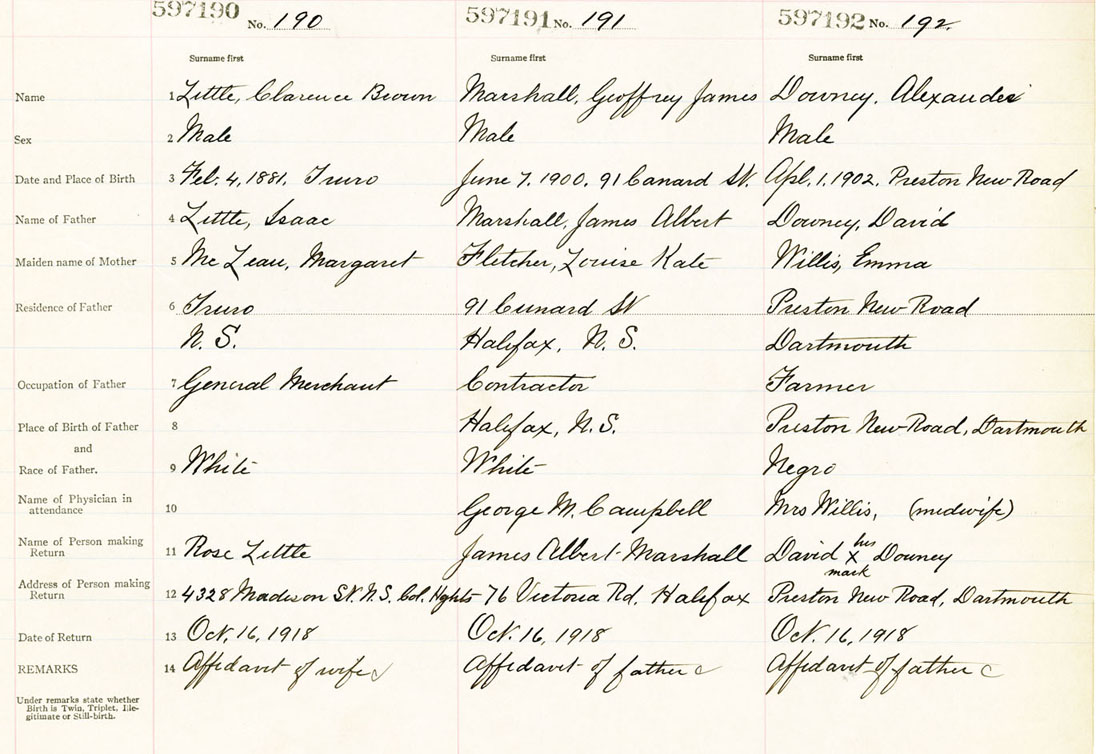 597190 No. 190 597191 No. 191 597192 No. 192.
Surname first Surname first Surname first
Name 1 Little, Clarence Brown Marshall, Geoffrey James Downey, Alexander
Sex 2 Male Male Male
Date and Place of Birth 3 Feb. 4, 1881. Truro June 7. 1900. 91 Cunard St. Apl. 1. 1902. Preston New Road
Name of Father 4 Little, Isaac Marshall, James Albert Downey, David
Maiden name of Mother 5 McLean, Margaret Fletcher, Louise Kate Willis, Emma
Residence of Father 6 Truro 91 Cunard St Preston New Road
N. S. Halifax, N. S. Dartmouth
Occupation of Father 7 General Merchant Contractor Farmer
Place of Birth of Father 8 Halifax, N. S. Preston New Road, Dartmouth
and
Race of Father. 9 White White Negro
Name of Physician in
attendance 10 George M. Campbell Mrs Willis, (midwife)
Name of Person making
Return 11 Rose Little James Albert Marshall David his X mark Downey
Address of Person making
Return 12 4328 Madison St. N.S. Col. Hghts 76 Victoria Rd. Halifax Preston New Road, Dartmouth
Date of Return 13 Oct. 16, 1918 Oct. 16, 1918 Oct. 16, 1918
REMARKS 14 Affidavit of wife c Affidavit of father c Affidavit of father c
Under remarks state whether
Birth is Twin, Triplet, Ille-
gitimate or Still-birth.